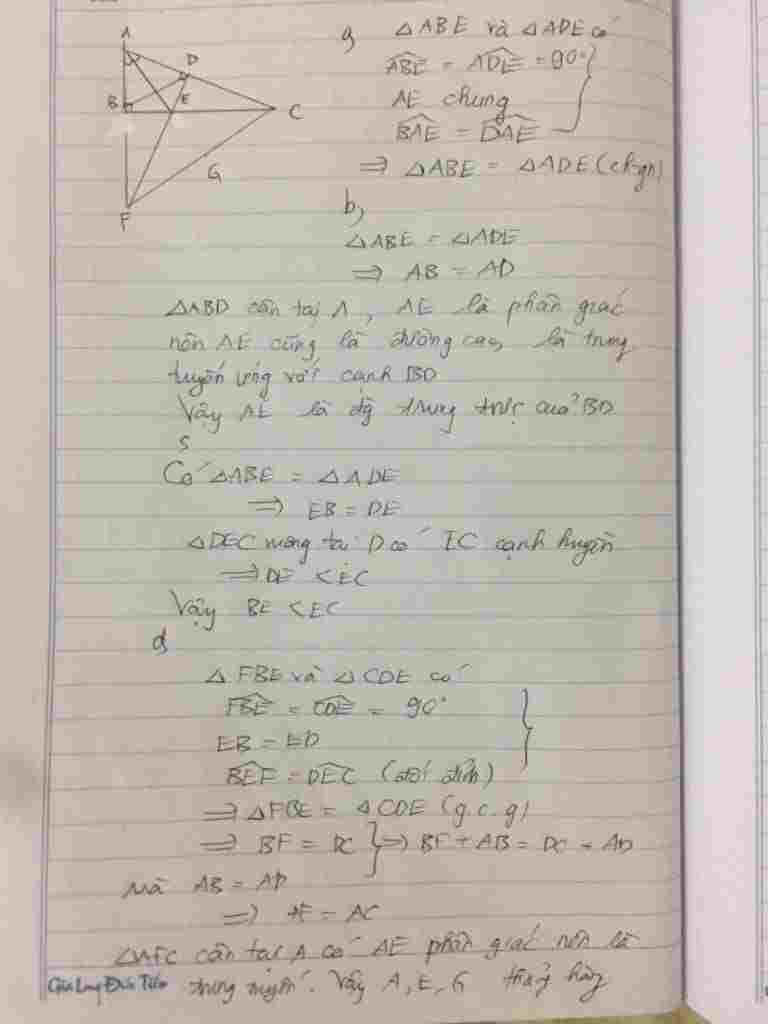 A
D
B
E
C
G
F
a, △ABE và △ADE có
ABE = ADE = 90°
AE chung
BAE = DAE
⇒ △ABE = △ADE (ch-gn)
b,
△ABE = △ADE
⇒ AB = AD
△ABD cân tại A, AE là phân giác
nên AE cũng là đường cao, là trung
tuyến ứng với cạnh BD
Vậy AE là đg trung trực của BD
c,
Có △ABE = △ADE
⇒ EB = DE
△DEC vuông tại D có EC cạnh huyền
⇒ DE < EC
Vậy BE < EC
d,
△FBE và △CDE có
FBE = CDE = 90°
EB = ED
BEF = DEC (đối đỉnh)
⇒ △FBE = △CDE (g.c.g)
⇒ BF = DC } ⇒ BF + AB = DC + AD
mà AB = AD
⇒ AF = AC
△AFC cân tại A có AE phân giác nên là
trung tuyến. Vậy A, E, G thẳng hàng